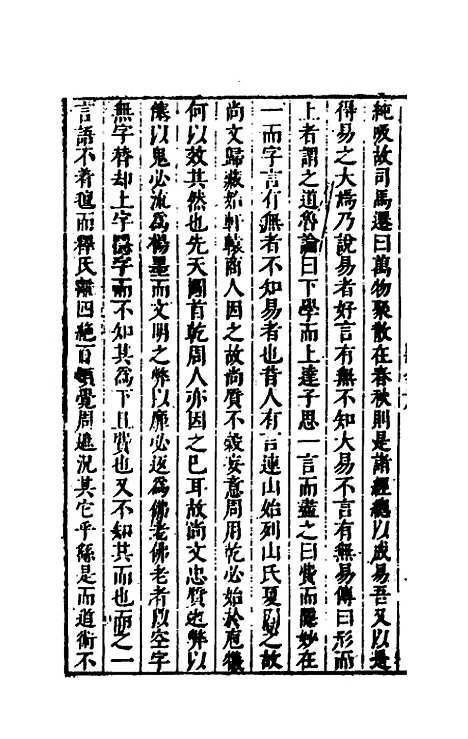 純吸故司馬遷曰萬物聚散在春秋則是諸經總以成易吾又以是
得易之大為乃說易者好言有無不知大易不言有無易傳曰形而
上者謂之道魯論曰下學而上達子思一言而盡之曰費而隱妙在
一而字言有無者不知易者也昔人有言連山始列山氏夏因之故
尚文歸藏始軒轅商人因之故尚質不敢妄意周用乾必始於庖犧
何以效其然也先天圖首乾周人亦因之已耳故尚文忠質之弊以
儀以鬼必流為楊墨而文明之弊以靡必返為佛老佛老者以空字
無字替却上字隱字而不知其為下且費也又不知其而也而之一
言語不着氊而釋氏離四絕百頓覺周遮況其它乎繇是而道術不